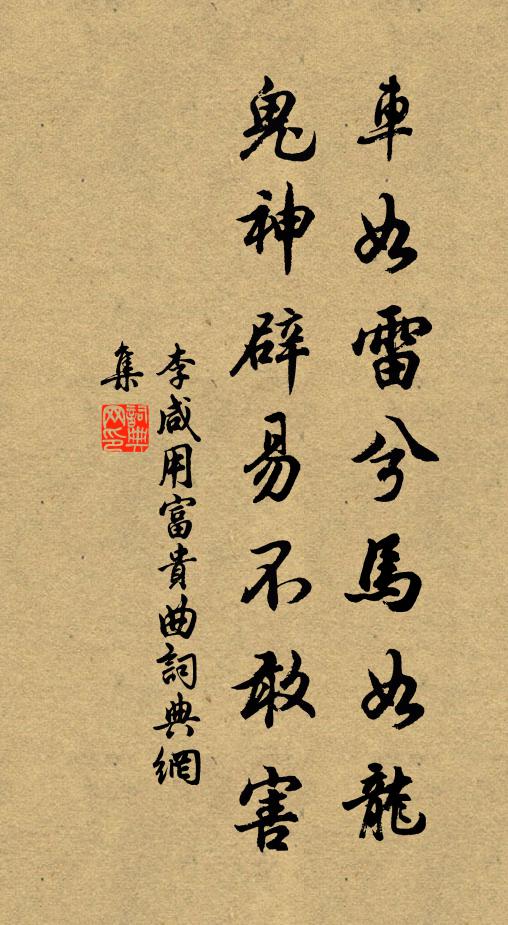 車如雷兮馬如龍
鬼神辟易不敢害
李咸用富貴曲詞典網
集
詞典
网印